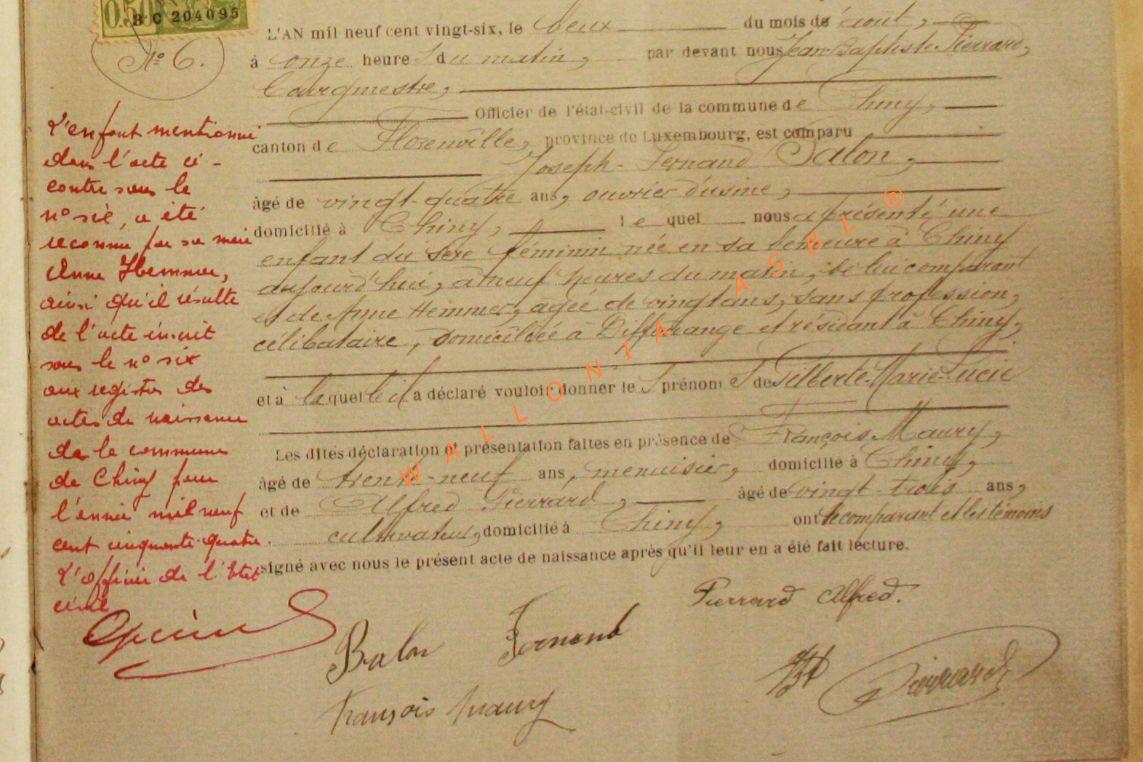 0.50
BC 204095
No 6.
L'AN mil neuf cent vingt-six, le deux du mois de août,
à onze heures du matin, par devant nous Jean Baptiste Pierrard,
Bourgmestre,
Officier de l'état-civil de la commune de Chiny,
canton de Florenville, province de Luxembourg, est comparu
Joseph-Fernand Balon,
âgé de vingt-quatre ans, ouvrier d'usine,
domicilié à Chiny, lequel nous a présenté une
enfant du sexe féminin née en sa demeure à Chiny
aujourd'hui, à neuf heures du matin, de lui comparant
et de Anne Hemmer, agée de vingt ans, sans profession,
célibataire, domiciliée à Differange et résidant à Chiny,
et à laquelle il a déclaré vouloir donner les prénoms de Gilberte-Marie-Lucie
Les dites déclaration et présentation faites en présence de François Maury,
âgé de trente-neuf ans, menuisier, domicilié à Chiny,
et de Alfred Pierrard, âgé de vingt-trois ans,
cultivateur, domicilié à Chiny, ont le comparant et les témoins
signé avec nous le présent acte de naissance après qu'il leur en a été fait lecture.
L'enfant mentionné
dans l'acte ci-
contre sous le
n° six, a été
reconnu par sa mère
Anne Hemmer,
ainsi qu'il résulte
de l'acte inscrit
sous le n° six
aux registres des
actes de naissance
de la commune
de Chiny pour
l'année mil neuf
cent cinquante-quatre.
L'officier de l'Etat
civil
Pierrard Alfred.
Balon Fernand
François Maury
JB Pierrard
WALLONIA ASBL ®